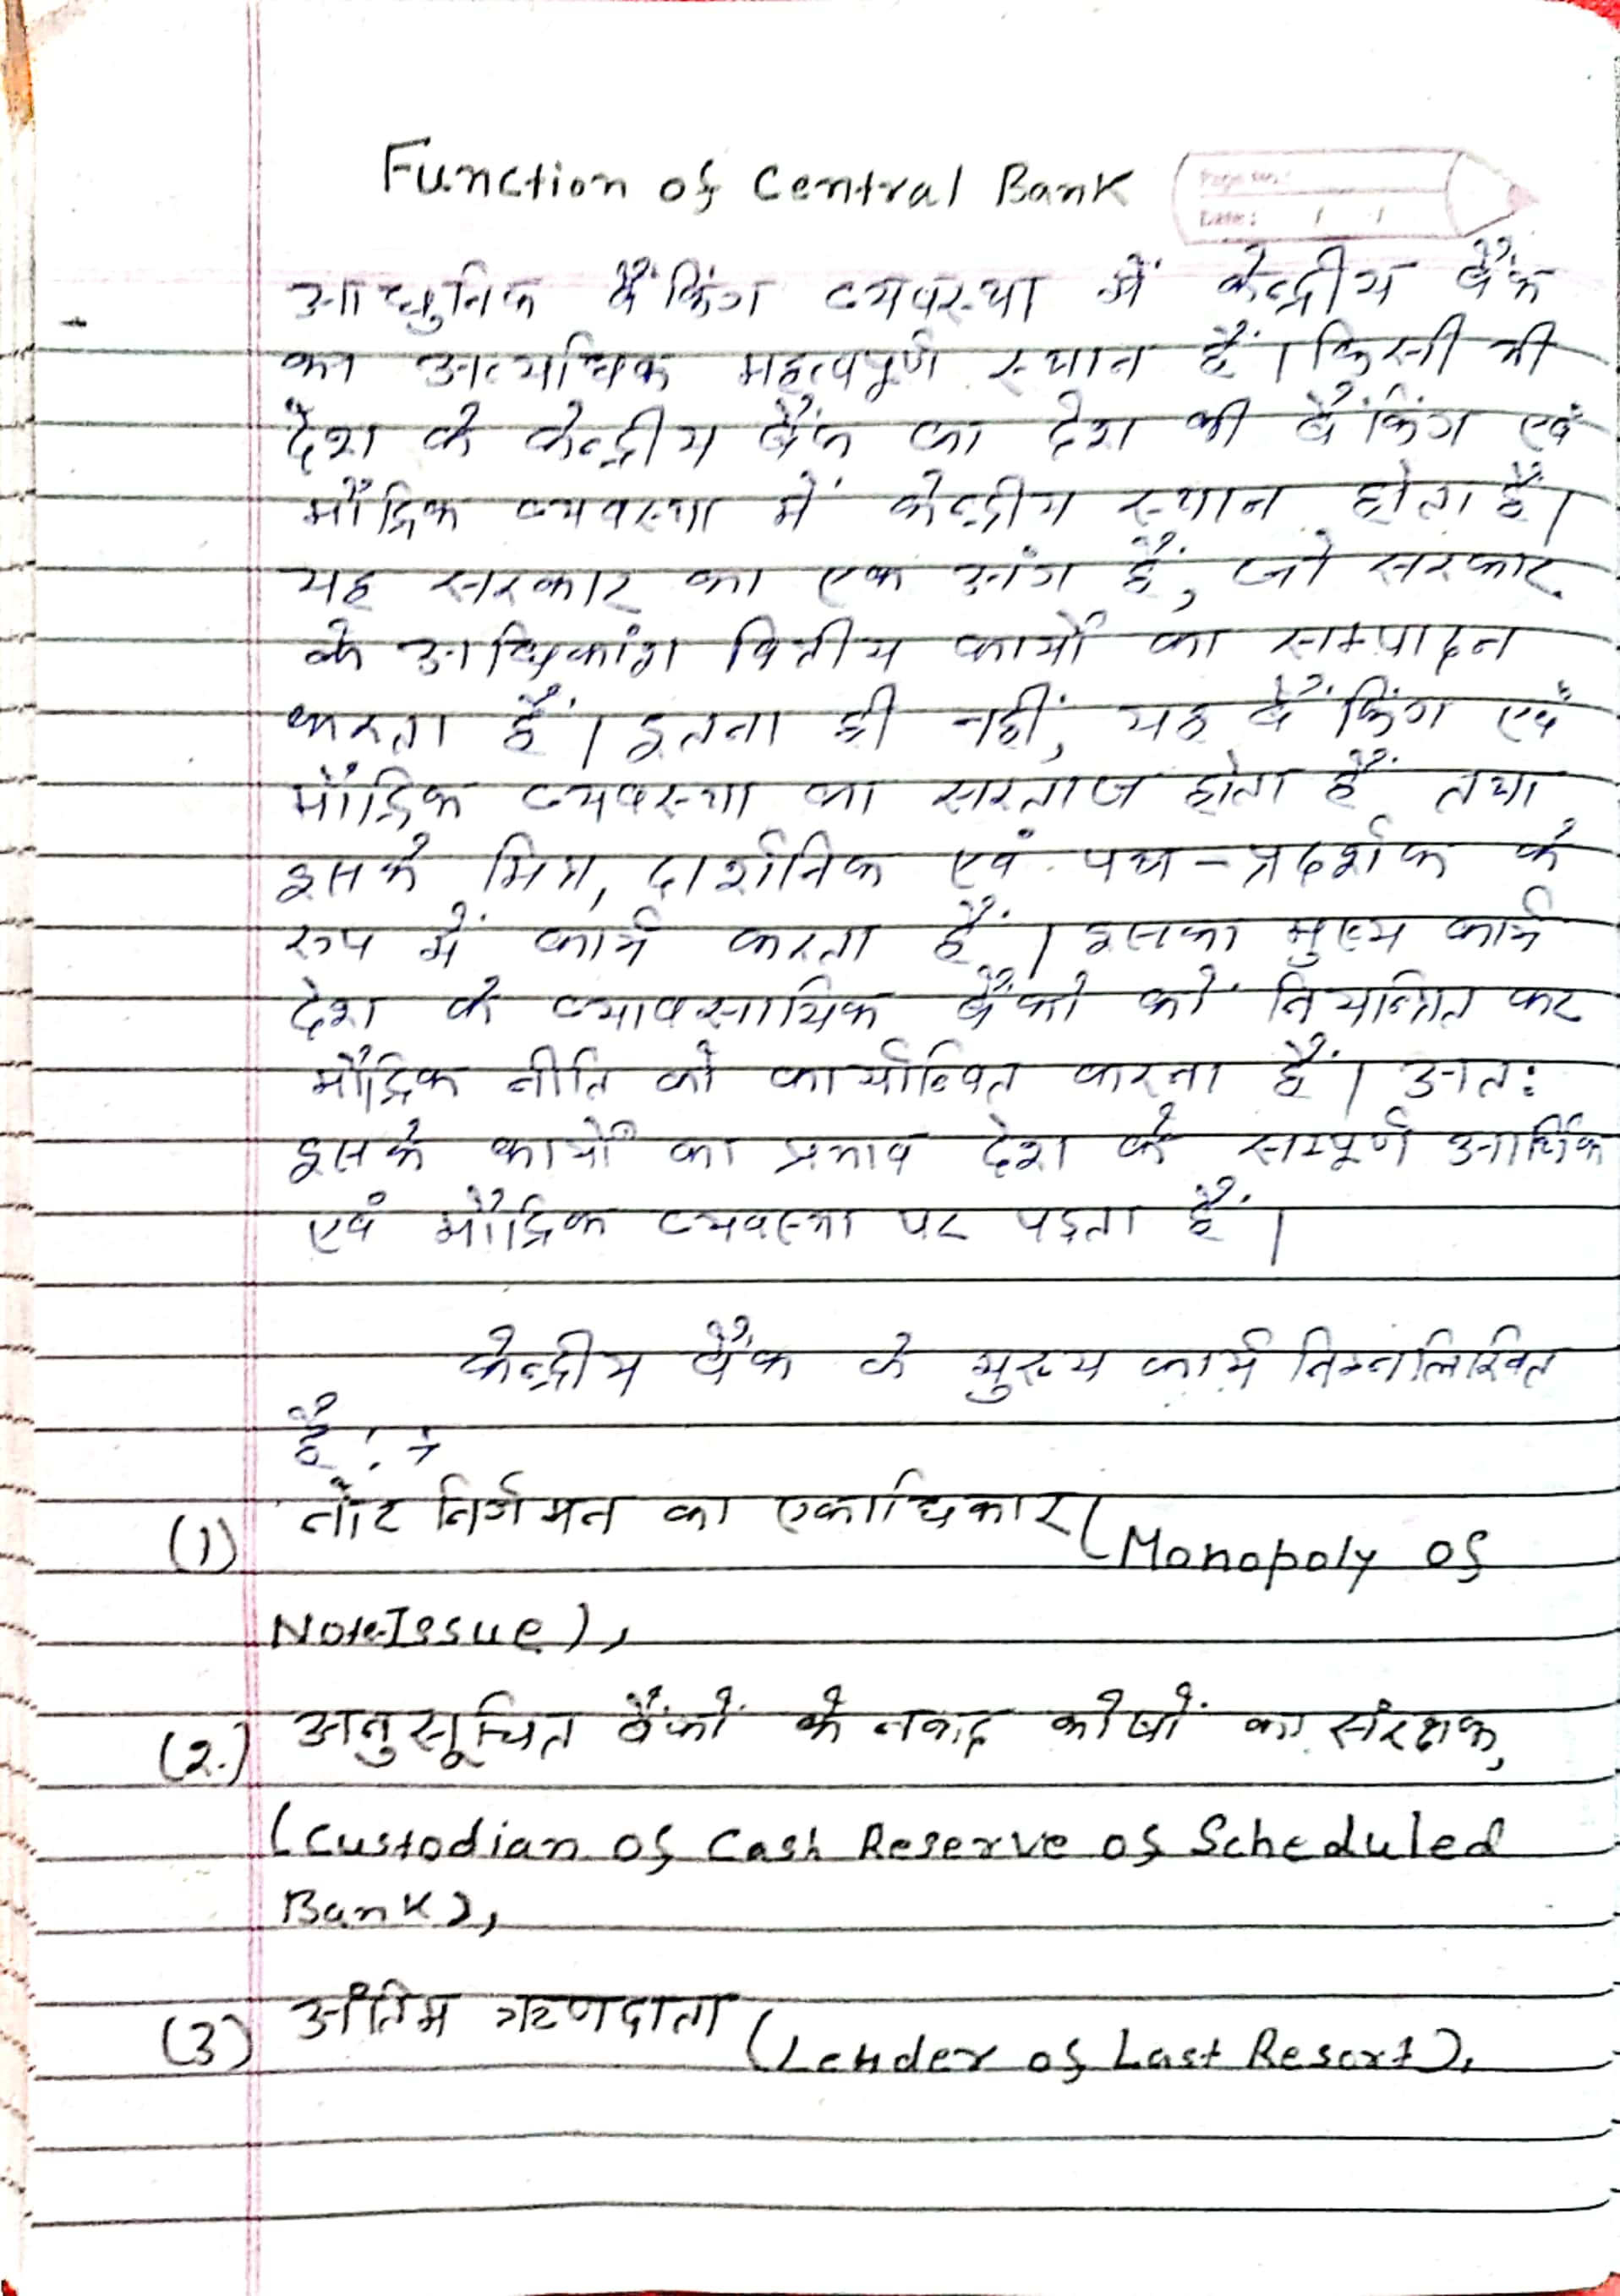 Function of Central Bank
Page No.:
Date: / /
आधुनिक बैंकिंग व्यवस्था में केन्द्रीय बैंक
का अत्यधिक महत्वपूर्ण स्थान हैं। किसी भी
देश के केन्द्रीय बैंक का देश की बैंकिंग एवं
मौद्रिक व्यवस्था में केन्द्रीय स्थान होता हैं।
यह सरकार का एक अंग हैं, जो सरकार
के अधिकांश वित्तीय कार्यों का सम्पादन
करता हैं। इतना ही नहीं, यह बैंकिंग एवं
मौद्रिक व्यवस्था का सरताज होता हैं तथा
इसके मित्र, दार्शनिक एवं पथ-प्रदर्शक के
रुप में कार्य करता हैं। इसका मुख्य कार्य
देश के व्यावसायिक बैंकों को नियन्त्रित कर
मौद्रिक नीति को कार्यान्वित करना हैं। अतः
इसके कार्यों का प्रभाव देश के सम्पूर्ण आर्थिक
एवं मौद्रिक व्यवस्था पर पड़ता हैं।
केन्द्रीय बैंक के मुख्य कार्य निम्नलिखित
हैं :-
(1) नोट निर्गमन का एकाधिकार (Monopoly of
Note-Issue),
(2.) अनुसूचित बैंकों के नकद कोषों का संरक्षक,
(Custodian of Cash Reserve of Scheduled
Bank),
(3) अंतिम ऋणदाता (Lender of Last Resort),